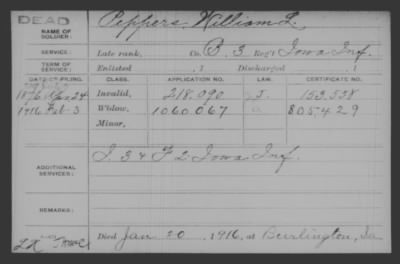 DEAD
NAME OF SOLDIER: Peppers William L.
SERVICE: Late rank, Co. B. 3 Reg't Iowa Inf.
TERM OF SERVICE: Enlisted , 1 Discharged , 1
DATE OF FILING. CLASS. APPLICATION NO. LAW. CERTIFICATE NO.
1876 Apr 24 Invalid, 218.090 153.538
1916 Feb 3 Widow, 1060.067 805.429
Minor,
ADDITIONAL SERVICES: I 34 F 2 Iowa Inf.
REMARKS:
Died Jan 20, 1916, at Burlington, Ia